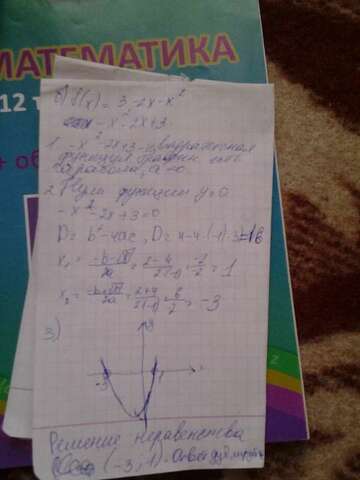 МАТЕМАТИКА
12 т
+ об
б) f(x) = 3-2x-x²
-x²-2x+3
1. -x²-2x+3 - квадратичная
функция график
парабола, a
2. Нули функции y=0
-x²-2x+3=0
D= b²-4ac, D= 4-4·(-1)·3=16
x₁ = -b-√D/2a = 2-4/2(-1) = -2/-2 = 1
x₂ = -b+√D/2a = 2+4/2(-1) = 6/-2 = -3
3)
-3 1
Решение неравенства
(-3; 1) - Ответ